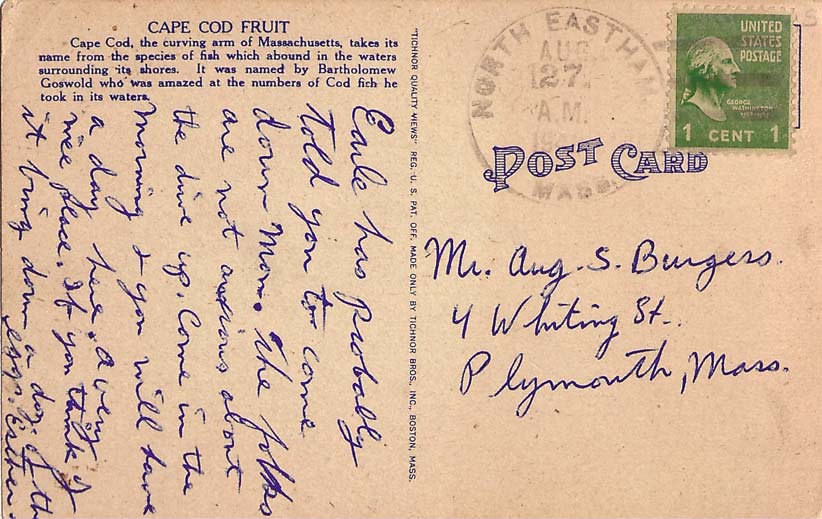 CAPE COD FRUIT
Cape Cod, the curving arm of Massachusetts, takes its
name from the species of fish which abound in the waters
surrounding its shores. It was named by Bartholomew
Goswold who was amazed at the numbers of Cod fish he
took in its waters.
Earle has probably
told you to come
down Mon. The folks
are not anxious about
the drive up. Come in the
morning & you will have
a day here. a very
nice place. If you think of
it bring down a doz. of the
eggs. Esther.
"TICHNOR QUALITY VIEWS" REG. U. S. PAT. OFF. MADE ONLY BY TICHNOR BROS., INC., BOSTON, MASS.
NORTH EASTHAM
AUG
27
A.M.
MASS.
UNITED
STATES
POSTAGE
GEORGE
WASHINGTON
1 CENT 1
POST CARD
Mr. Aug. S. Burgess.
4 Whiting St.
Plymouth, Mass.